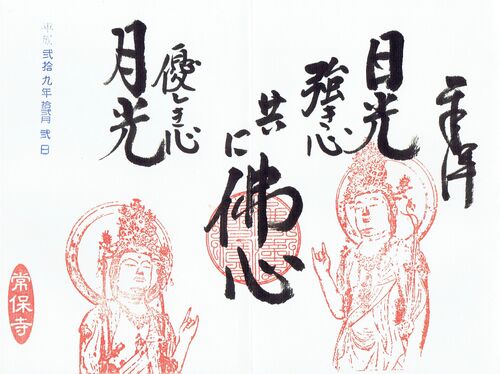 奉拝
日光
強き心
共に
佛心
優しき心
月光
平成弐拾九年拾弐月弐日
常保寺